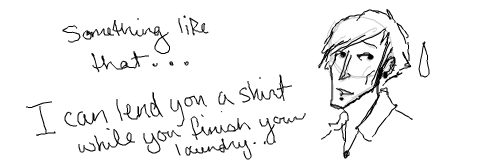 Something like
that...
I can lend you a shirt
while you finish your
laundry...